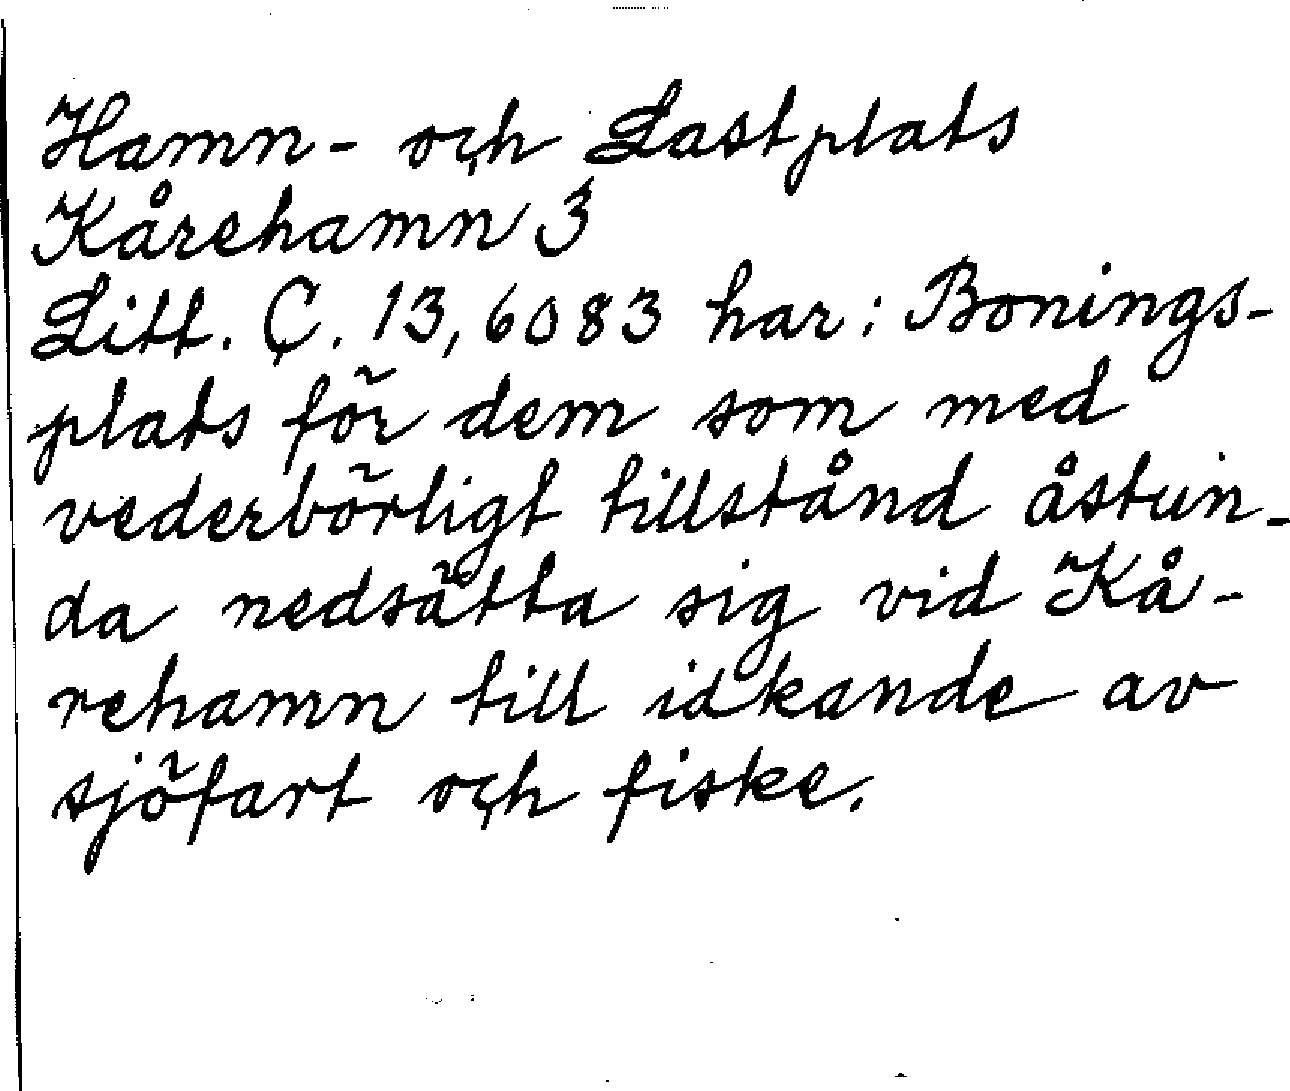 Hamn- och Lastplats
Kårehamn 3
Litt. C. 13, 6083 har: Bonings-
plats för dem som med
vederbörligt tillstånd åstun-
da nedsätta sig vid Kå-
rehamn till idkande av
sjöfart och fiske.